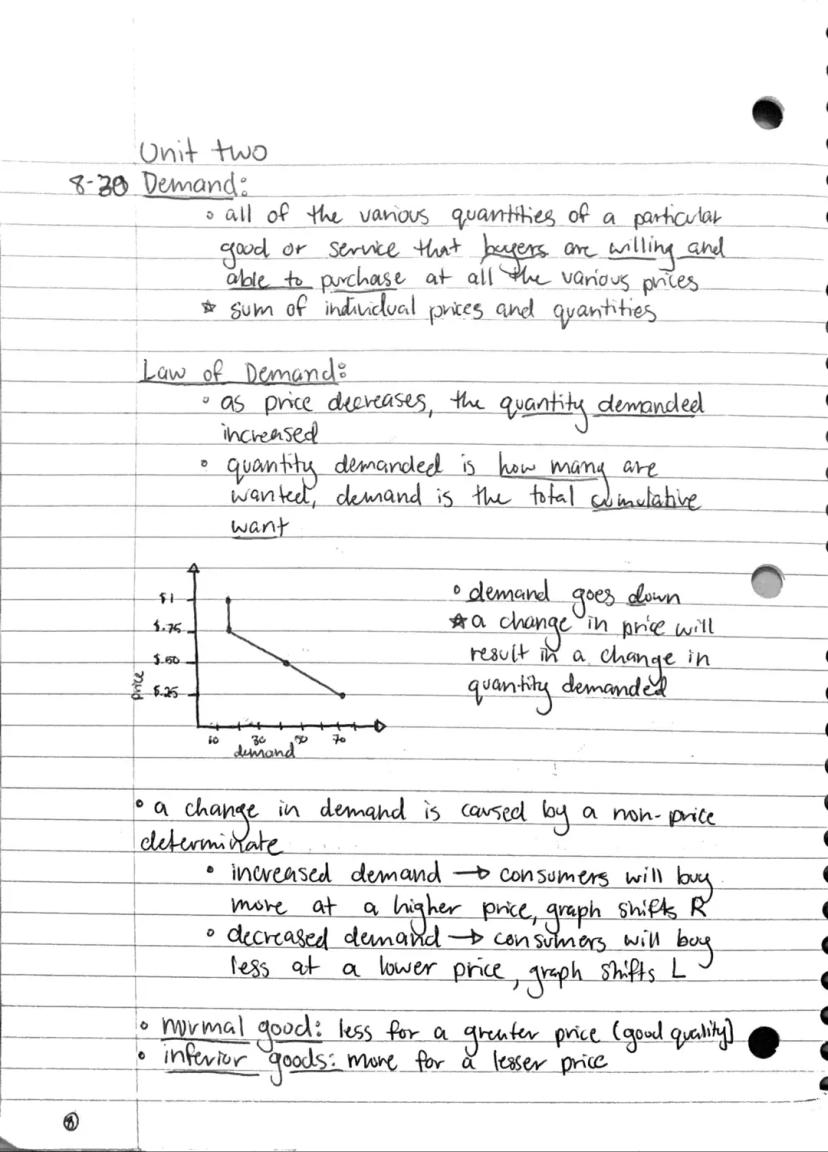 Unit two
8-30 Demand:
◦ all of the various quantities of a particular
good or service that buyers are willing and
able to purchase at all the various prices
☆ sum of individual prices and quantities
Law of Demand:
◦ as price decreases, the quantity demanded
increased
◦ quantity demanded is how many are
wanted, demand is the total cumulative
want
$1
$.75
$.50
$.25
price
10 30 50 70
demand
◦ demand goes down
☆ a change in price will
result in a change in
quantity demanded
◦ a change in demand is caused by a non-price
determinate
◦ increased demand → consumers will buy
more at a higher price, graph shifts R
◦ decreased demand → consumers will buy
less at a lower price, graph shifts L
◦ normal good: less for a greater price (good quality)
◦ inferior goods: more for a lesser price
8